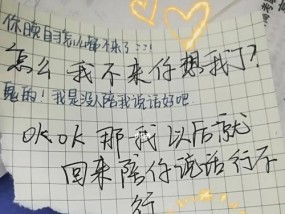 你晚自怎么都不来了???
怎么 我不来你想我了?
鬼的!我是没人陪我说话好吧
OKOK 那我以后就
回来陪你说话行不
行